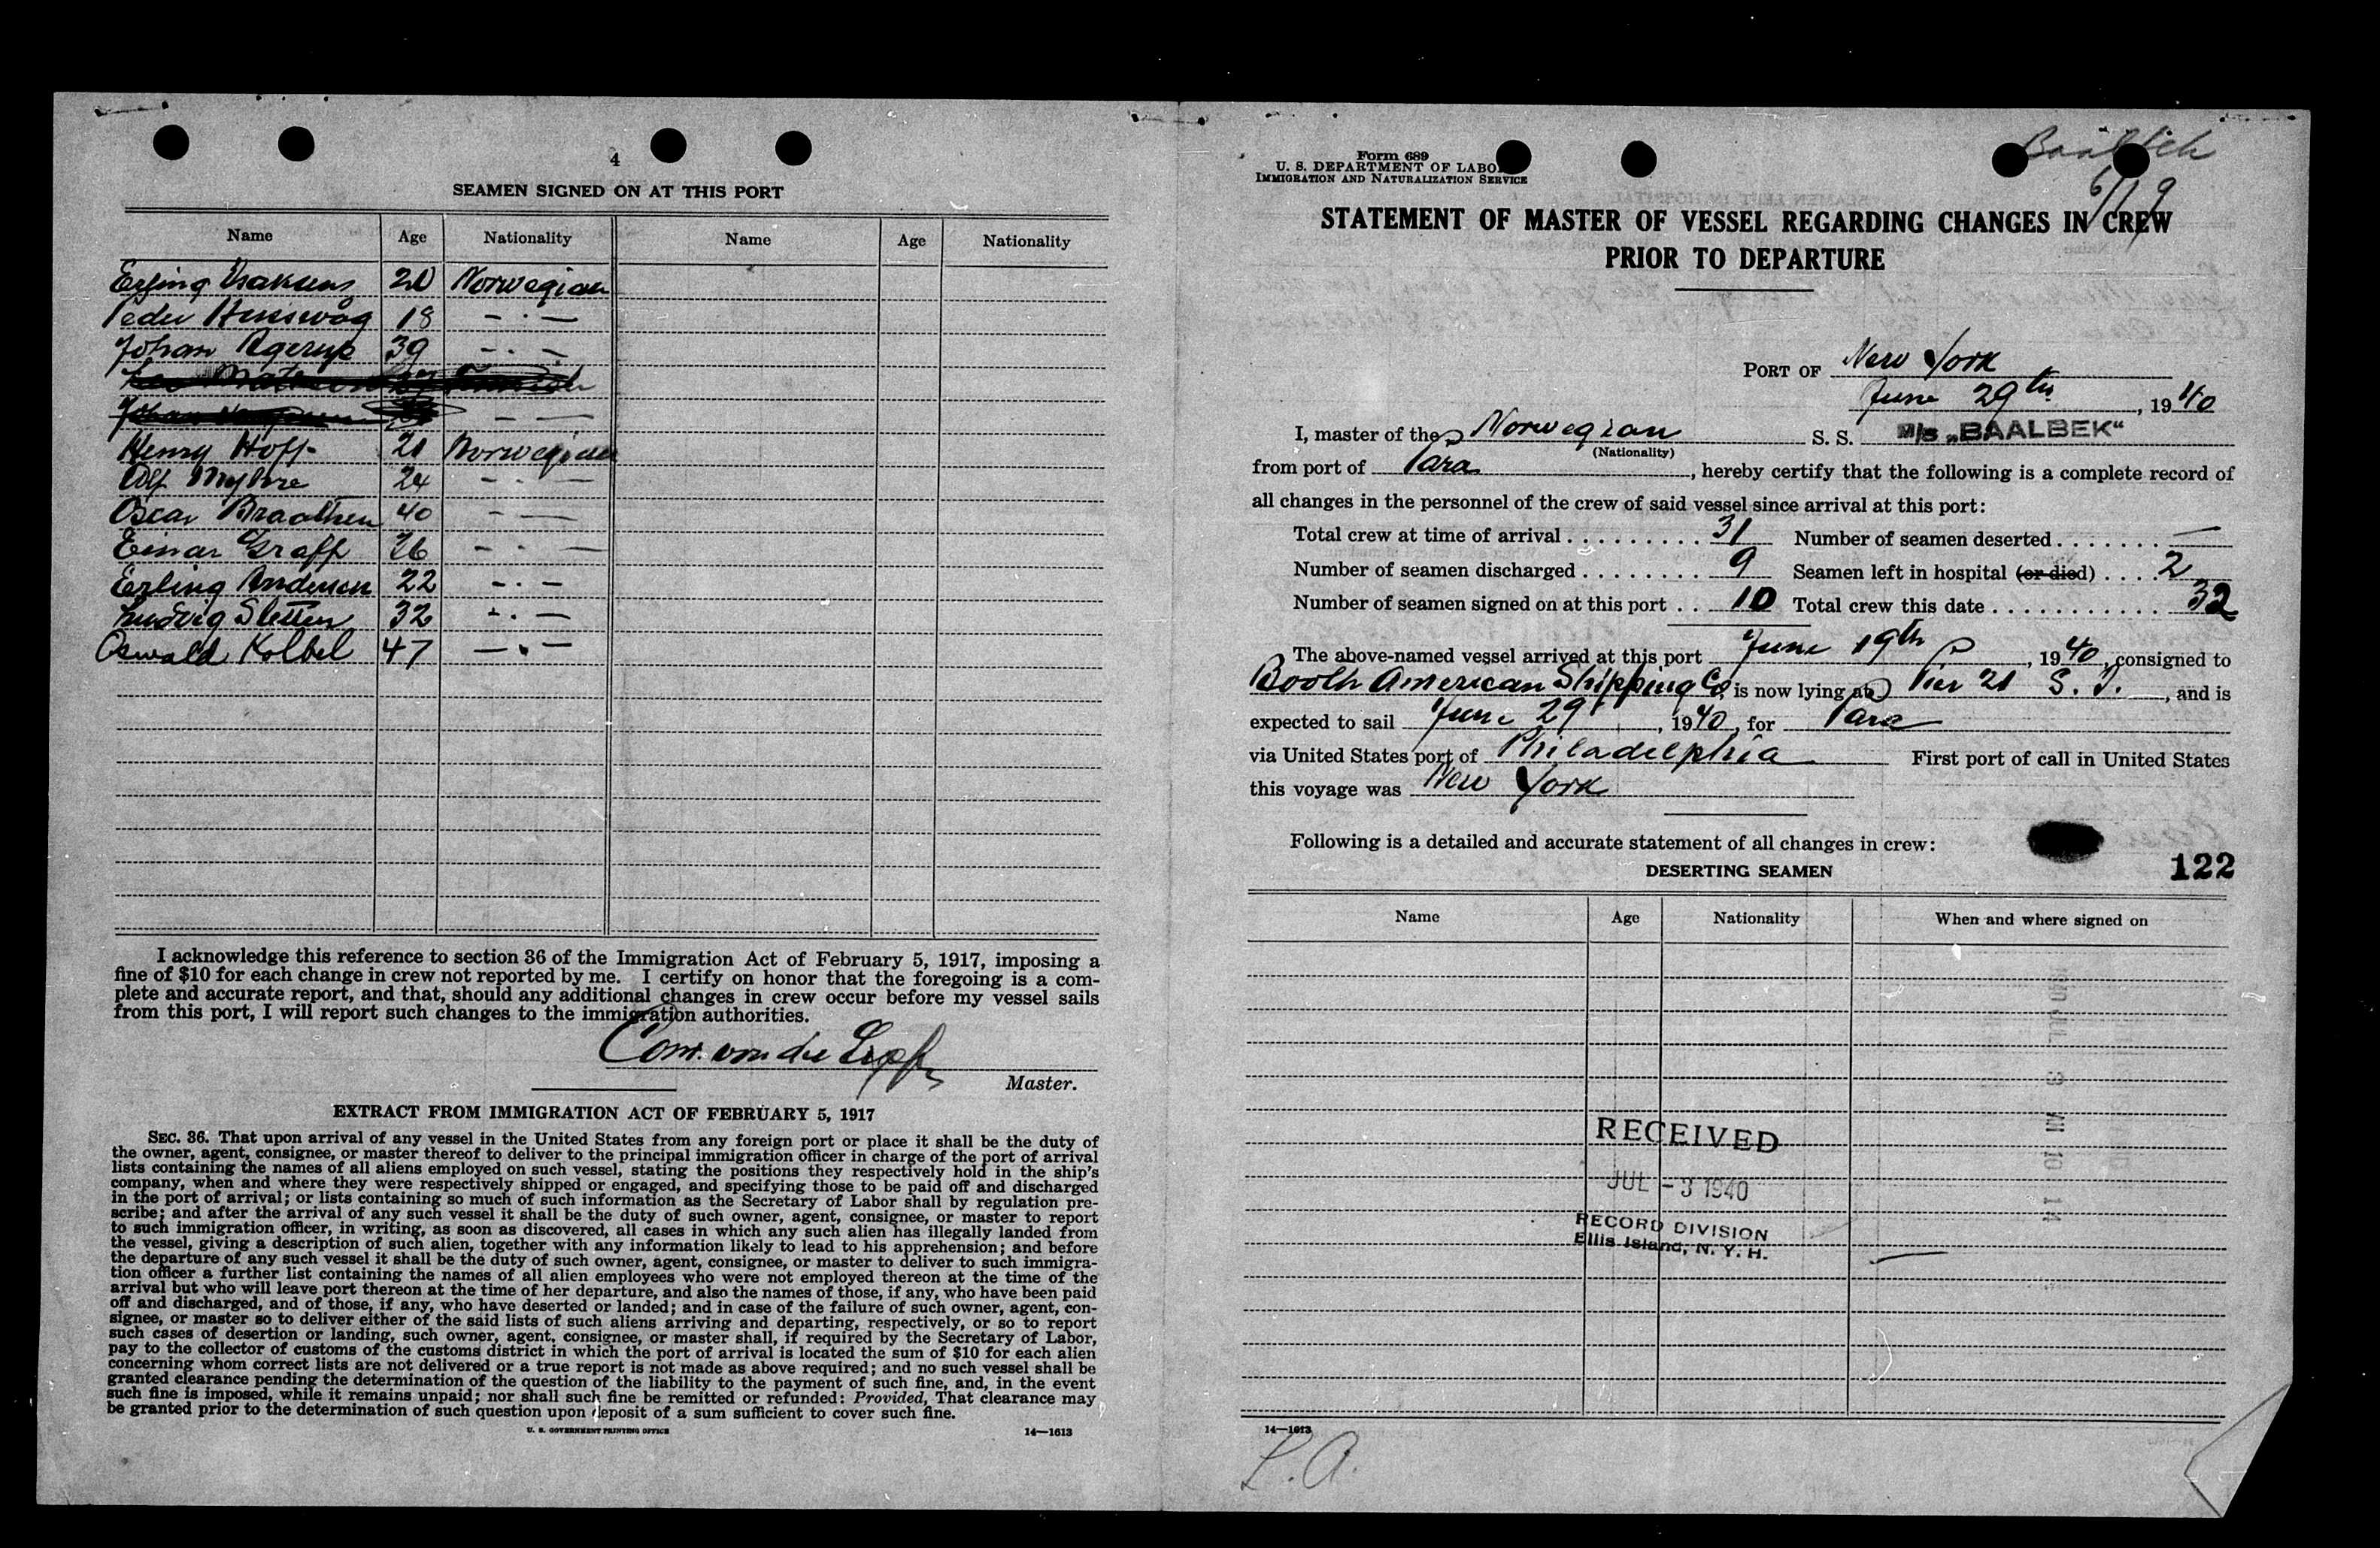 4
SEAMEN SIGNED ON AT THIS PORT
Name Age Nationality Name Age Nationality
Erling Isaksens 20 Norwegian
Peder 18 — · —
Johan Agerup 39 — · —
— —
Henry Hoff 21 Norwegian
Alf Myhre 24 — · —
Oscar Braathen 40 — · —
Einar Graff 26 — · —
Erling Andersen 22 — · —
Ludvig Sletten 32 — · —
Oswald Kolbel 47 — · —
I acknowledge this reference to section 36 of the Immigration Act of February 5, 1917, imposing a
fine of $10 for each change in crew not reported by me. I certify on honor that the foregoing is a com-
plete and accurate report, and that, should any additional changes in crew occur before my vessel sails
from this port, I will report such changes to the immigration authorities.
Master.
EXTRACT FROM IMMIGRATION ACT OF FEBRUARY 5, 1917
SEC. 36. That upon arrival of any vessel in the United States from any foreign port or place it shall be the duty of
the owner, agent, consignee, or master thereof to deliver to the principal immigration officer in charge of the port of arrival
lists containing the names of all aliens employed on such vessel, stating the positions they respectively hold in the ship's
company, when and where they were respectively shipped or engaged, and specifying those to be paid off and discharged
in the port of arrival; or lists containing so much of such information as the Secretary of Labor shall by regulation pre-
scribe; and after the arrival of any such vessel it shall be the duty of such owner, agent, consignee, or master to report
to such immigration officer, in writing, as soon as discovered, all cases in which any such alien has illegally landed from
the vessel, giving a description of such alien, together with any information likely to lead to his apprehension; and before
the departure of any such vessel it shall be the duty of such owner, agent, consignee, or master to deliver to such immigra-
tion officer a further list containing the names of all alien employees who were not employed thereon at the time of the
arrival but who will leave port thereon at the time of her departure, and also the names of those, if any, who have been paid
off and discharged, and of those, if any, who have deserted or landed; and in case of the failure of such owner, agent, con-
signee, or master so to deliver either of the said lists of such aliens arriving and departing, respectively, or so to report
such cases of desertion or landing, such owner, agent, consignee, or master shall, if required by the Secretary of Labor,
pay to the collector of customs of the customs district in which the port of arrival is located the sum of $10 for each alien
concerning whom correct lists are not delivered or a true report is not made as above required; and no such vessel shall be
granted clearance pending the determination of the question of the liability to the payment of such fine, and, in the event
such fine is imposed, while it remains unpaid; nor shall such fine be remitted or refunded: Provided, That clearance may
be granted prior to the determination of such question upon deposit of a sum sufficient to cover such fine.
U. S. GOVERNMENT PRINTING OFFICE 14—1613
Form 689
U. S. DEPARTMENT OF LABOR
IMMIGRATION AND NATURALIZATION SERVICE
6/19
STATEMENT OF MASTER OF VESSEL REGARDING CHANGES IN CREW
PRIOR TO DEPARTURE
PORT OF New York
June 29th, 1940
I, master of the Norwegian S. S. M/S „BAALBEK“
(Nationality)
from port of Para, hereby certify that the following is a complete record of
all changes in the personnel of the crew of said vessel since arrival at this port:
Total crew at time of arrival . . . . . . . . . 31 Number of seamen deserted . . . . . . . —
Number of seamen discharged . . . . . . . . 9 Seamen left in hospital (or died) . . . . 2
Number of seamen signed on at this port . . 10 Total crew this date . . . . . . . . . . . . 32
The above-named vessel arrived at this port June 19th, 1940, consigned to
Booth American Shipping Co, is now lying at Pier 21 S. I., and is
expected to sail June 29, 1940, for Para
via United States port of Philadelphia First port of call in United States
this voyage was New York
Following is a detailed and accurate statement of all changes in crew:
122
DESERTING SEAMEN
Name Age Nationality When and where signed on
RECEIVED
JUL - 3 1940
RECORD DIVISION
Ellis Island, N. Y. H.
14—1613
L. A.